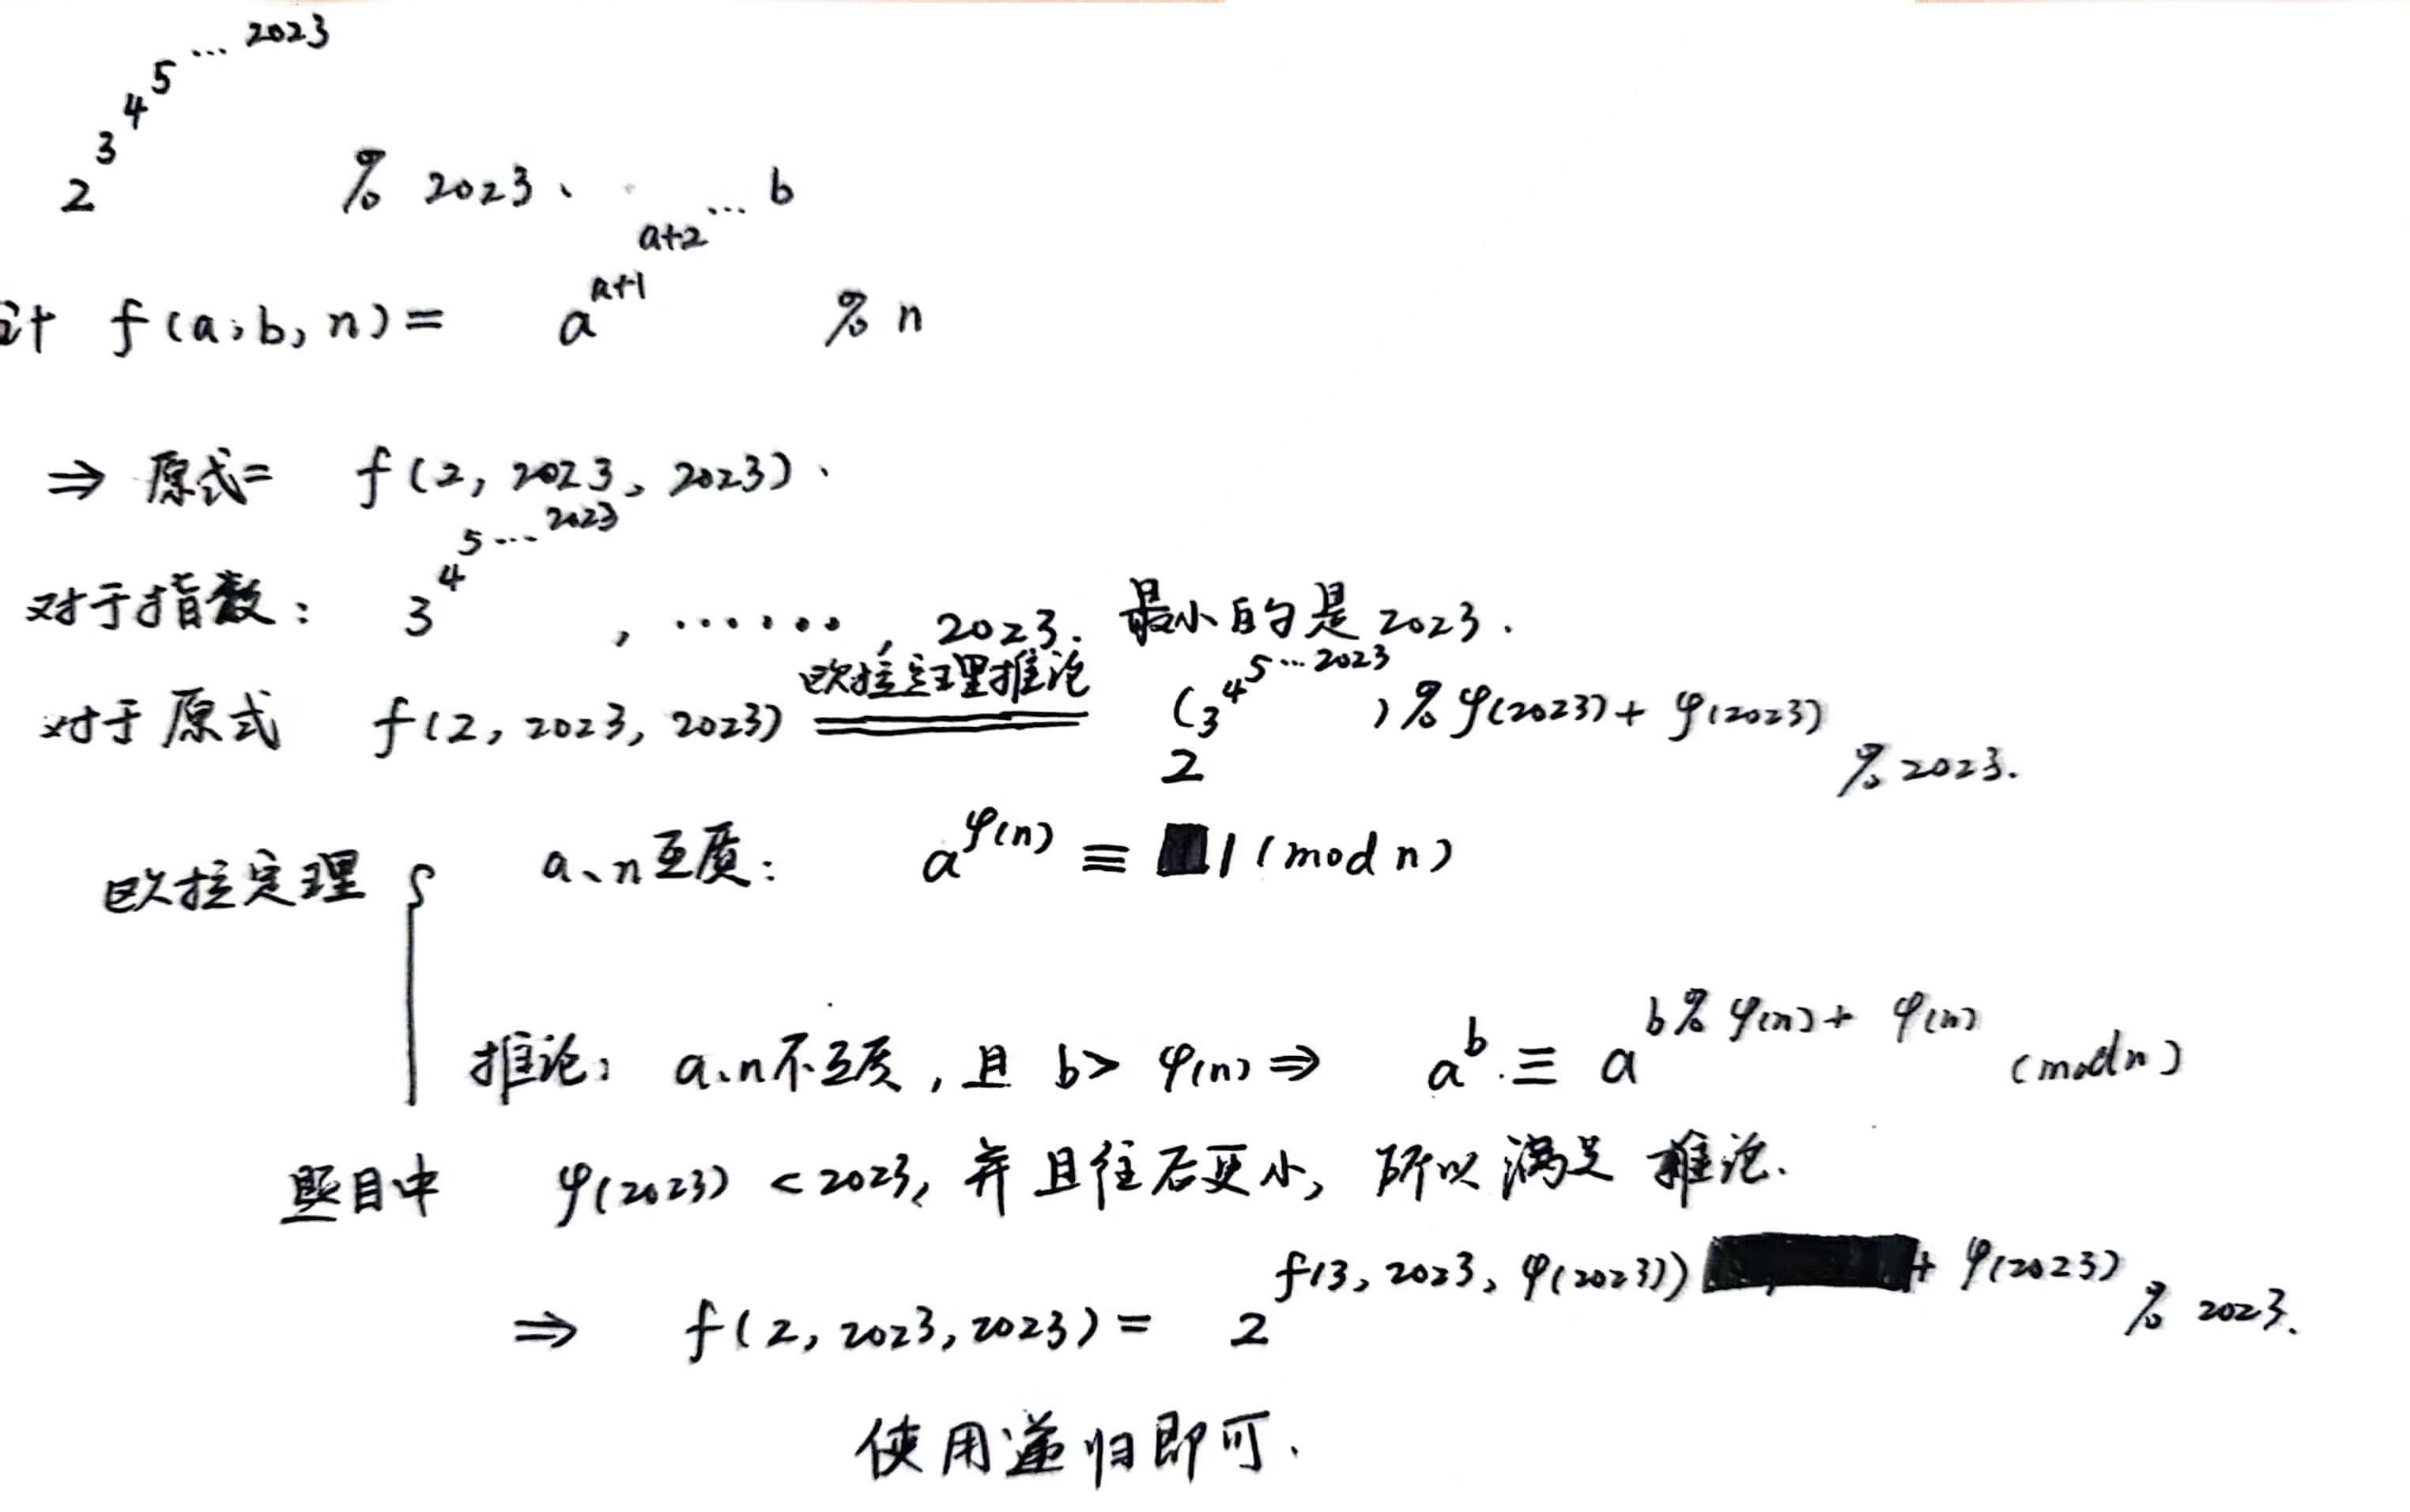 2^3^4^5^…^2023 % 2023、
计 f(a,b,n) = a^a+1^a+2^…^b % n
⇒ 原式= f(2, 2023, 2023)、
对于指数: 3^4^5^…^2023 , ······, 2023. 最小的是 2023.
对于原式 f(2, 2023, 2023) 欧拉定理推论 2^(3^4^5^…^2023)%φ(2023)+φ(2023) % 2023.
欧拉定理 { a、n互质: a^φ(n) ≡ 1 (mod n)
推论: a、n不互质, 且 b > φ(n) ⇒ a^b ≡ a^b%φ(n)+φ(n) (mod n)
题目中 φ(2023) < 2023, 并且往后更小, 所以满足 推论.
⇒ f(2, 2023, 2023) = 2^f(3, 2023, φ(2023)) + φ(2023) % 2023.
使用递归即可.